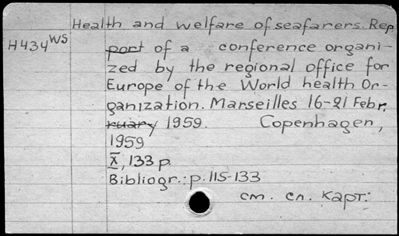 Health and welfare of seafarers. Rep
H434 WS
port of a conference organi-
zed by the regional office for
Europe of the World health Or-
ganization. Marseilles 16-21 Febr,
ruary 1959. Copenhagen,
1959
X, 133 p.
Bibliogr.: p. 115-133
см. сл. карт.